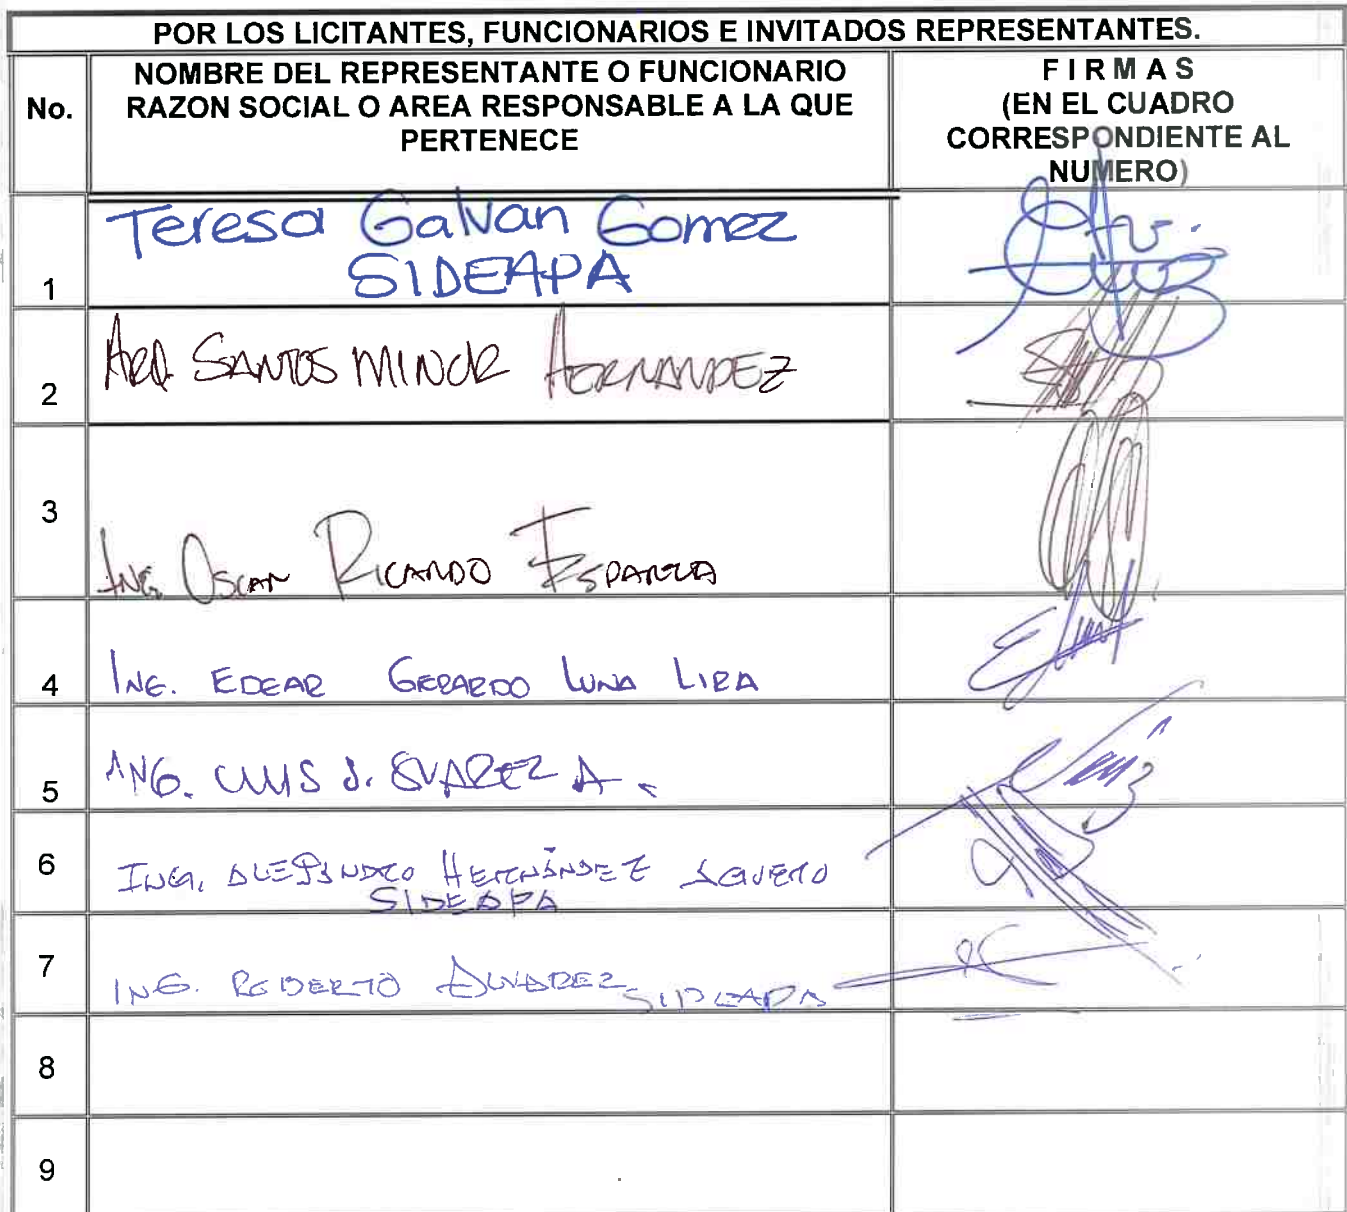 POR LOS LICITANTES, FUNCIONARIOS E INVITADOS REPRESENTANTES.
No.
NOMBRE DEL REPRESENTANTE O FUNCIONARIO
RAZON SOCIAL O AREA RESPONSABLE A LA QUE
PERTENECE
F I R M A S
(EN EL CUADRO
CORRESPONDIENTE AL
NUMERO)
1
Teresa Galvan Gomez
SIDEAPA
2
ARQ. SANTOS MINOR HERNANDEZ
3
ING. OSCAR RICARDO ESPARZA
4
ING. EDGAR GERARDO LUNA LIRA
5
ING. LUIS J. SUAREZ A.
6
ING. ALEJANDRO HERNÁNDEZ AGUERO
SIDEAPA
7
ING. ROBERTO ALVAREZ
SIDEAPA
8
9